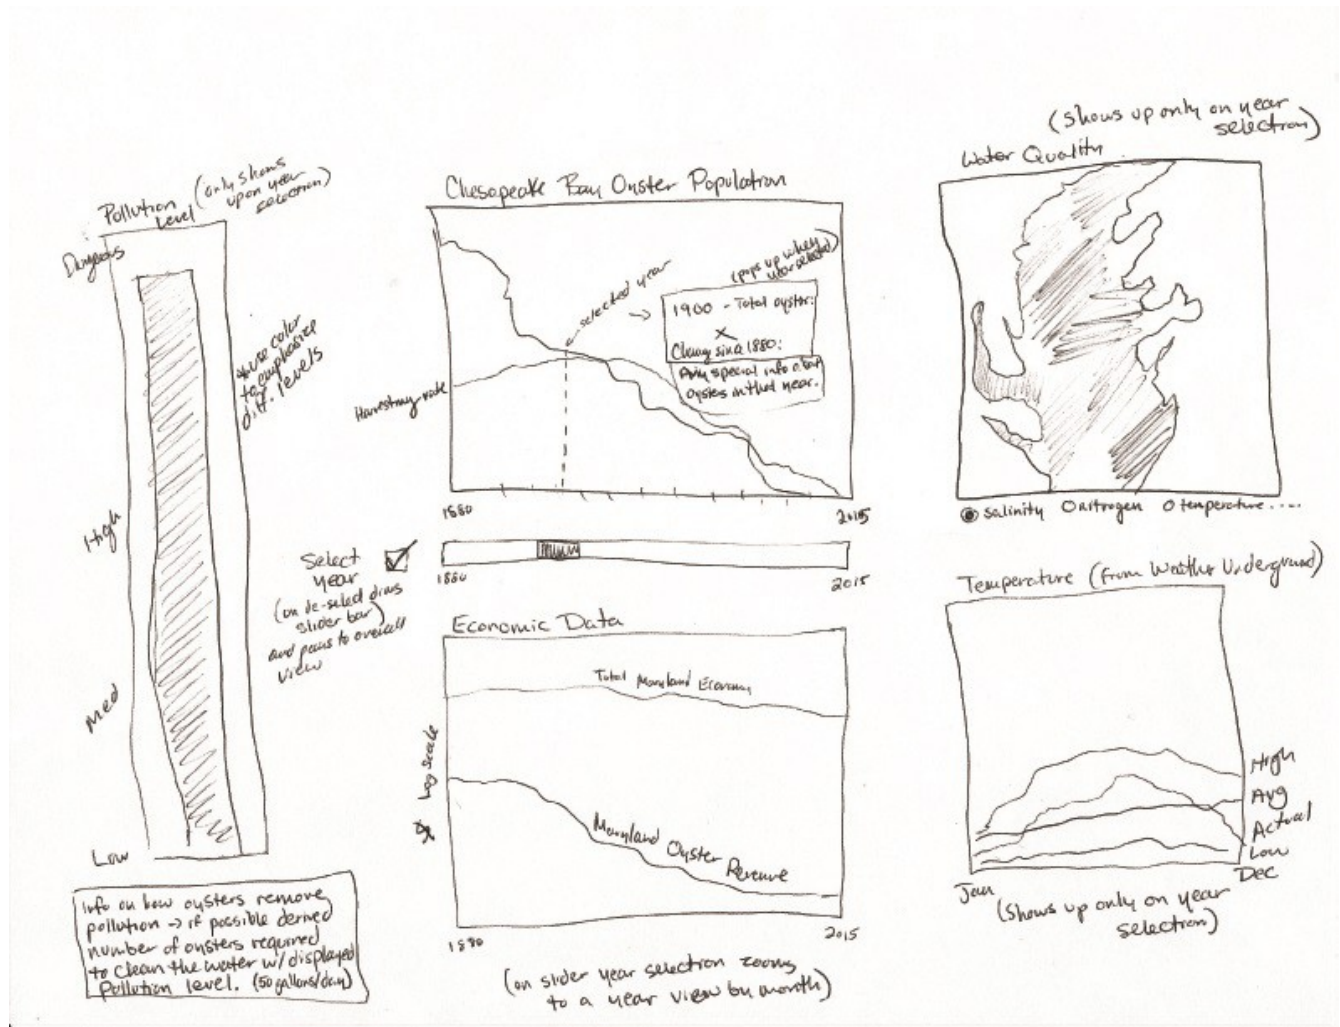 Pollution
Level
(only shows
upon year
selection)
Dangerous
High
Med
Low
*use color
to emphasize
diff. levels
Info on how oysters remove
pollution → if possible derived
number of oysters required
to clean the water w/ displayed
Pollution level. (50 gallons/day)
Select
year
(on de-select dims
slider bar)
and pans to overall
view
Chesapeake Bay Oyster Population
← selected year
(pops up when
year selected)
1900 - Total oyster:
X
Change since 1880:
Any special info about
oysters in that year.
Harvesting rate
1880
2015
1880
2015
Economic Data
Total Maryland Economy
* Log scale
Maryland Oyster
Revenue
1880
2015
(on slider year selection zooms
to a year view by month)
(Shows up only on year
selection)
Water Quality
salinity O nitrogen O temperature....
Temperature (from Weather Underground)
High
Avg
Actual
Low
Jan
Dec
(Shows up only on year
selection)